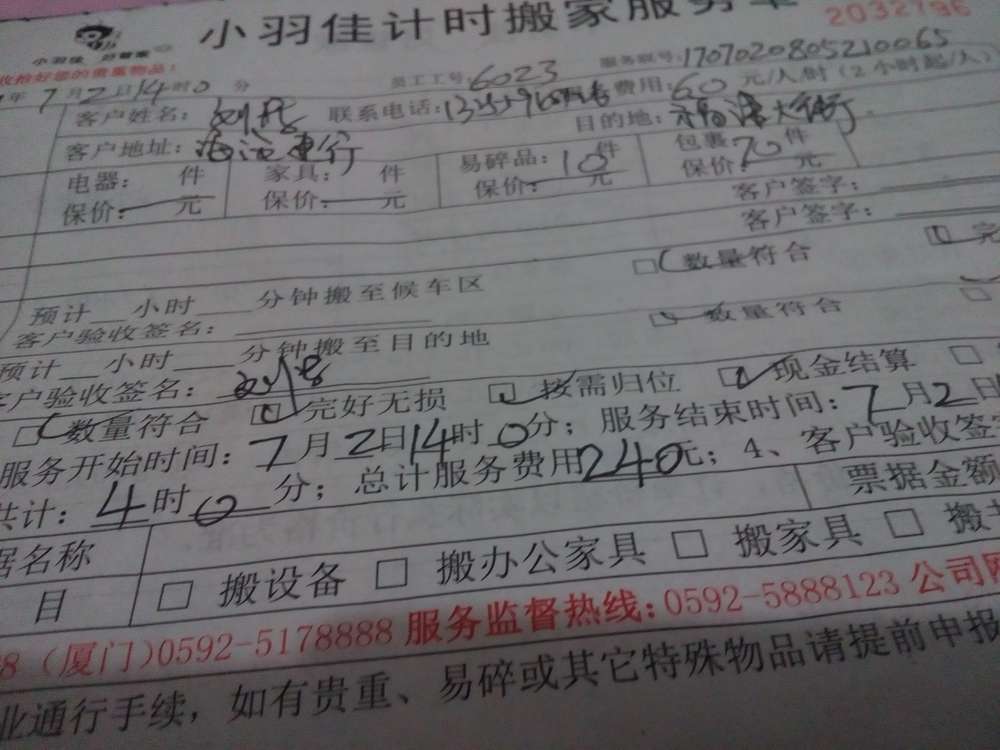 小羽佳计时搬家服务单
2032796
小羽佳 好管家
收拾好您的贵重物品！
年7月2日14时0分 员工工号：6023 服务账号：1707020805210065
客户姓名： 联系电话： 费用：60元/人/时（2小时起/人）
客户地址： 目的地：
电器： 件 家具： 件 易碎品：10件 包裹70件
保价： 元 保价： 元 保价： 元 保价： 元
客户签字：
客户签字：
预计 小时 分钟搬至候车区 □数量符合 □完
客户验收签名：
预计 小时 分钟搬至目的地 □数量符合 □
客户验收签名：
□数量符合 □完好无损 □按需归位 □现金结算 □
服务开始时间：7月2日14时0分；服务结束时间：7月2日
共计：4时0分；总计服务费用240元；4、客户验收签
据名称 票据金额
目 □ 搬设备 □ 搬办公家具 □ 搬家具 □ 搬
8（厦门）0592-5178888 服务监督热线：0592-5888123 公司网
业通行手续，如有贵重、易碎或其它特殊物品请提前申报